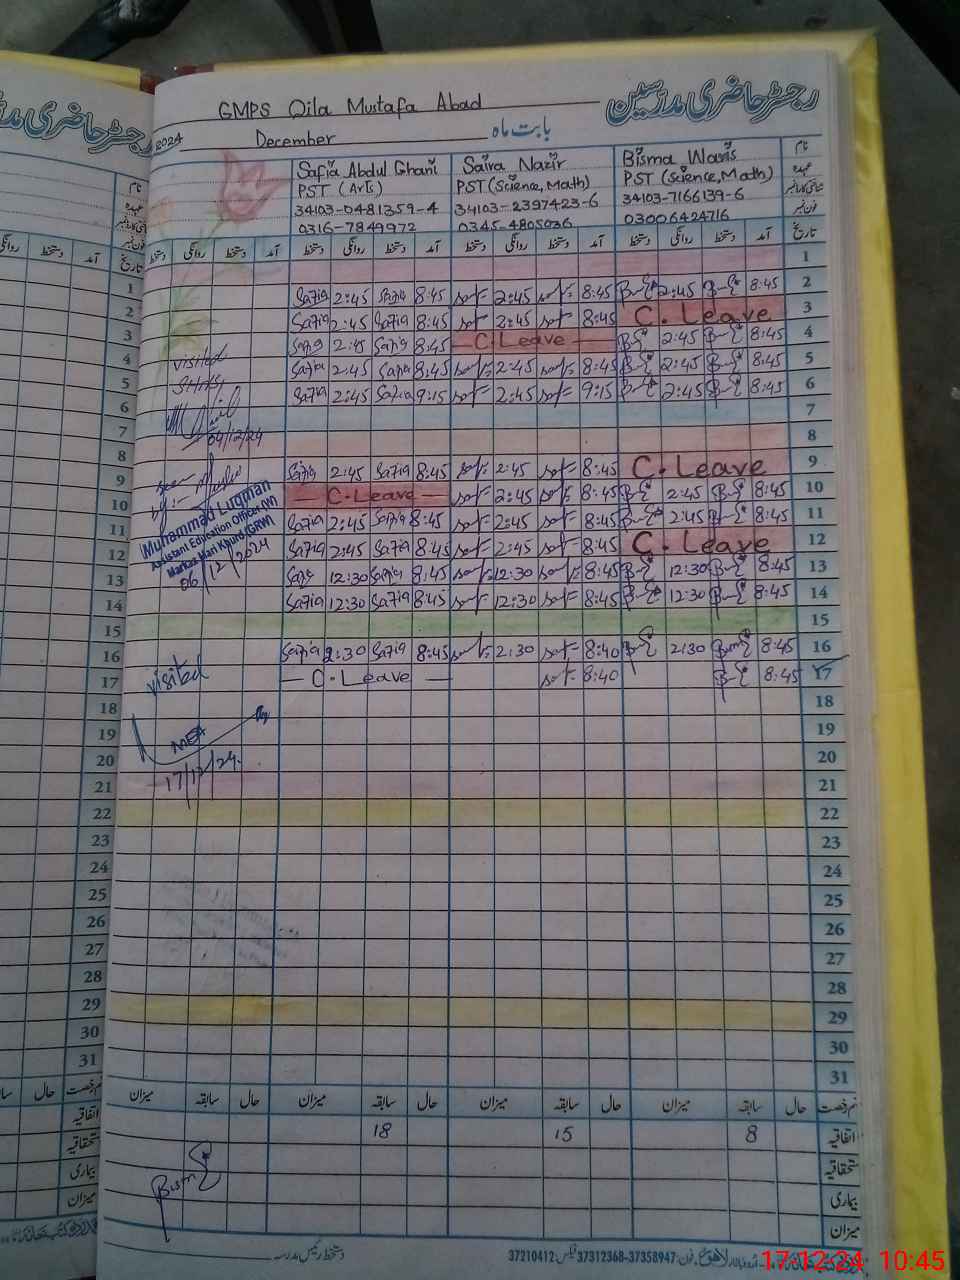 رجسٹر حاضری مدرسین
GMPS Qila Mustafa Abad
2024 December بابت ماہ
Safia Abdul Ghani Saira Nazir Bisma Waris نام
PST (Arts) PST (Science, Math) PST (Science, Math) عہدہ
34103-0481359-4 34103-2397423-6 34103-7166139-6
0316-7849972 0345-4805036 03006424716 فون نمبر
دستخط روانگی دستخط آمد دستخط روانگی دستخط آمد دستخط روانگی دستخط آمد دستخط روانگی دستخط آمد تاریخ
1
Safia 2:45 Safia 8:45 2:45 8:45 2:45 8:45 2
Safia 2:45 Safia 8:45 2:45 8:45 C.Leave 3
Safia 2:45 Safia 8:45 C.Leave 2:45 8:45 4
Safia 2:45 Safia 8:45 2:45 8:45 2:45 8:45 5
Safia 2:45 Safia 9:15 2:45 9:15 2:45 8:45 6
7
8
Safia 2:45 Safia 8:45 2:45 8:45 C.Leave 9
C.Leave 2:45 8:45 2:45 8:45 10
Safia 2:45 Safia 8:45 2:45 8:45 2:45 8:45 11
Safia 2:45 Safia 8:45 2:45 8:45 C.Leave 12
Safia 12:30 Safia 8:45 12:30 8:45 12:30 8:45 13
Safia 12:30 Safia 8:45 12:30 8:45 12:30 8:45 14
15
Safia 2:30 Safia 8:45 2:30 8:40 2:30 8:45 16
C.Leave 8:40 8:45 17
18
19
20
21
22
23
24
25
26
27
28
29
30
31
visited
04/12/24
Muhammad Luqman
Assistant Education Officer (W)
Markaz Mari Khurd (GRW)
06/12/2024
visited
MEA
17/12/24
میزان سابقہ حال میزان سابقہ حال میزان سابقہ حال میزان سابقہ حال قسم رخصت
18 15 8 اتفاقیہ
استحقاقیہ
بیماری
میزان
Bisma
دستخط رئیس مدرسہ
فون: 37358947-37312368 فیکس: 37210412
رجسٹر حاضری مدرسین
نام
عہدہ
فون نمبر
روانگی دستخط آمد تاریخ
1
2
3
4
5
6
7
8
9
10
11
12
13
14
15
16
17
18
19
20
21
22
23
24
25
26
27
28
29
30
31
حال قسم رخصت
اتفاقیہ
استحقاقیہ
بیماری
میزان
17-12-24 10:45